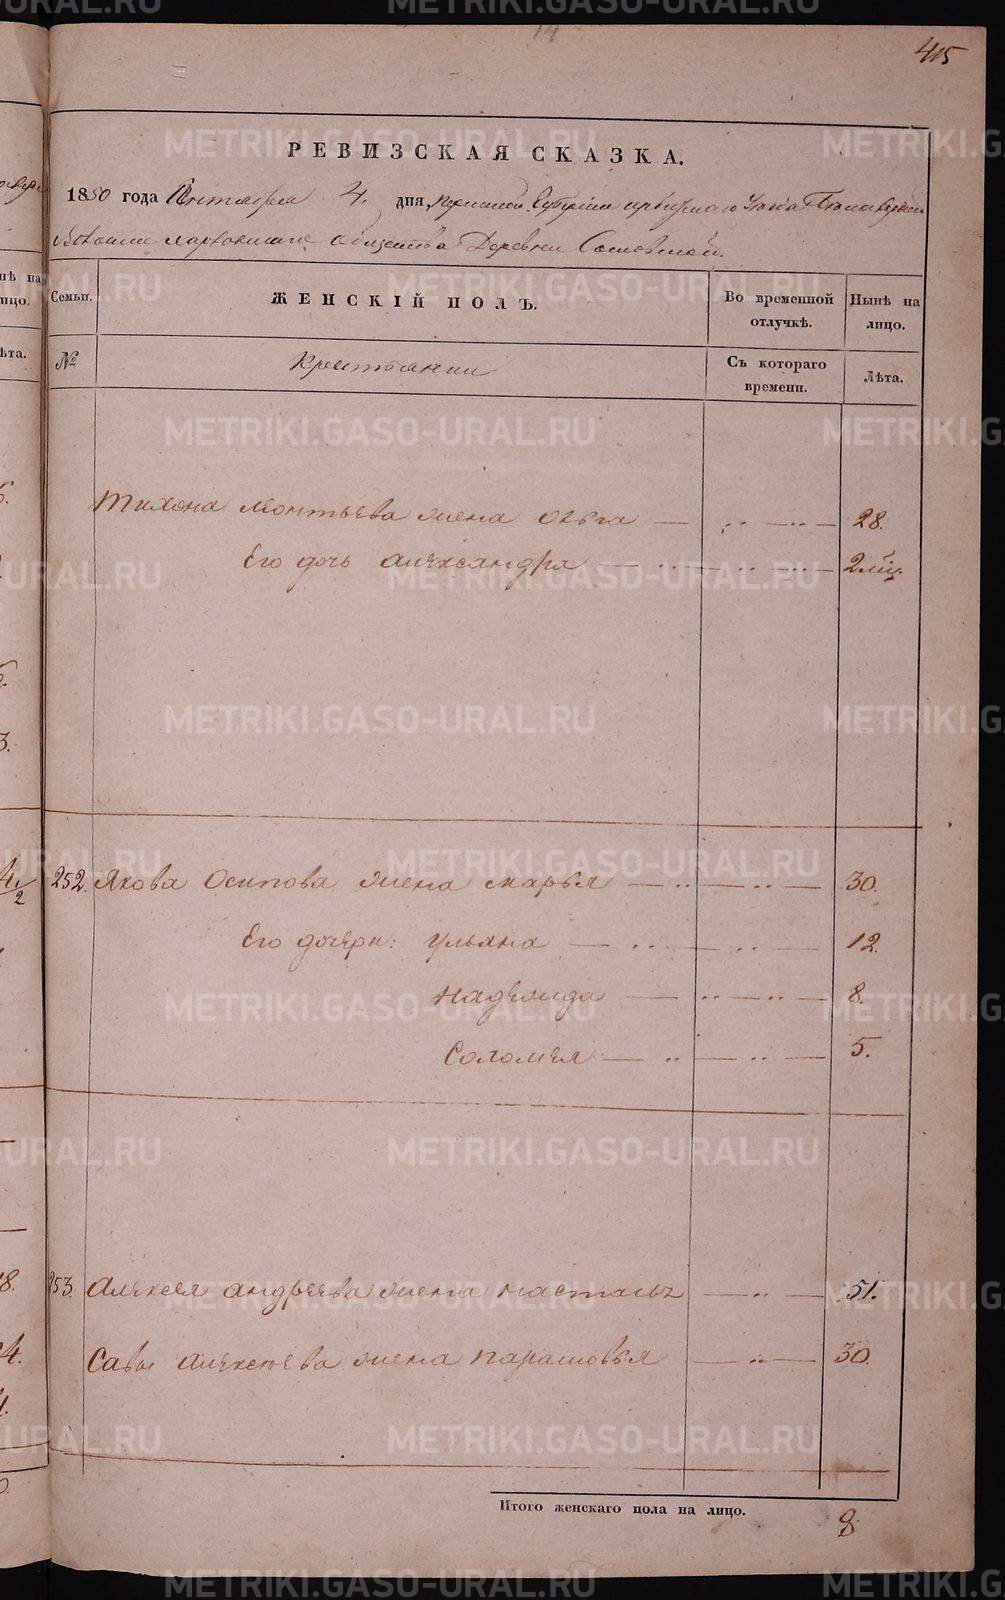 415
РЕВИЗСКАЯ СКАЗКА.
1850 года Сентября 4. дня, Пермской Губернии Ирбитскаго Уезда
общества Деревни Сосновской.
Семьи. ЖЕНСКІЙ ПОЛЪ. Во временной отлучкѣ. Нынѣ на лицо.
№ Крестьянки Съ котораго времени. Лѣта.
Тихона Леонтьева жена Ольга — 28.
Его дочь Александра — 2 мѣц.
252. Якова Осипова жена Марья — 30.
Его дочери: Ульяна — 12.
Надежида — 8.
Соломея — 5.
253. Алексея Андреева жена Настасья — 51.
Савы Алексеева жена Парасковья — 30.
Итого женскаго пола на лицо. 8
METRIKI.GASO-URAL.RU